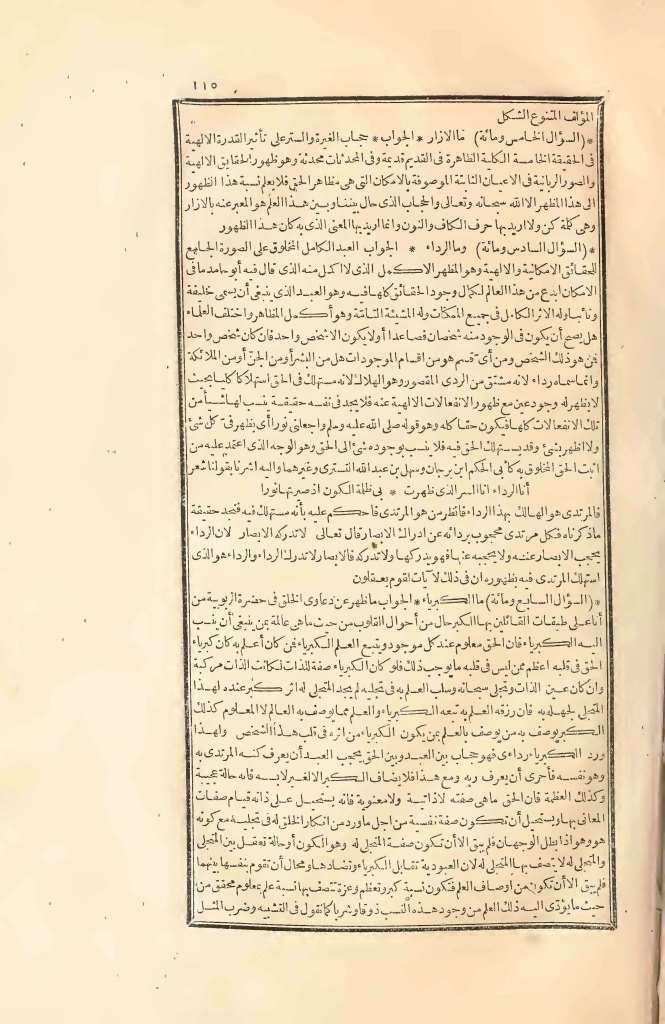 ١١٥
المؤلف المتنوع الشكل
* (السؤال الخامس ومائة) ما الازار * الجواب * حجاب الغيرة والستر على تأثير القدرة الالهية
فى الحقيقة الخامسة الكلية الظاهرة فى القديم قديمة وفى المحدثات محدثة وهو ظهور الحقايق الالهية
والصور الربانية فى الاعيان الثابتة الموصوفة بالامكان التى هى مظاهر الحق فلا يعلم نسبة هذا الظهور
الى هذا المظهر الا الله سبحانه وتعالى والحجاب الذى حال بيننا وبين هذا العلم هو المعبر عنه بالازار
وهى كلمة كن ولا اريد بها حرف الكاف والنون وانما اريد بها المعنى الذى به كان هذا الظهور
* (السؤال السادس ومائة) وما الرداء * الجواب العبد الكامل المخلوق على الصورة الجامع
للحقائق الامكانية والالهية وهو المظهر الاكمل الذى لا اكمل منه الذى قال فيه أبو حامد ما فى
الامكان ابدع من هذا العالم لكمال وجود الحقائق كلها فيه وهو العبد الذى ينبغى أن يسمى خليفة
ونائبا وله الاثر الكامل فى جميع الممكنات وله المشيئة التامة وهو أكمل المظاهر واختلف العلماء
هل يصح أن يكون فى الوجود منه شخصان فصاعدا أو لا يكون الا شخص واحد فان كان شخص واحد
فمن هو ذلك الشخص ومن أى قسم هو من اقسام الموجودات هل من البشر أو من الجن أو من الملائكة
وانما سماه رداء لانه مشتق من الردى المقصور وهو الهلاك لانه مستهلك فى الحق استهلاكا كليا بحيث
لا يظهر له وجود عين مع ظهور الانفعالات الالهية عنه فلا يجد فى نفسه حقيقة ينسب لها شيأ من
تلك الانفعالات كلها فيكون حقا كله وهو قوله صلى الله عليه وسلم واجعلنى نورا أى يظهر فى كل شئ
ولا اظهر بشئ وقد يستهلك الحق فيه فلا ينسب بوجوده شئ الى الحق وهو الوجه الذى اعتمد عليه من
اثبت الحق المخلوق به كأبى الحكم ابن برجان وسهل بن عبد الله التسترى وغيرهما واليه اشرنا بقولنا شعر
أنا الرداء انا السر الذى ظهرت * بى ظلمة الكون اذ صيرتها نورا
فالمرتدى هو الهالك بهذا الرداء فانظر من هو المرتدى فاحكم عليه بأنه مستهلك فيه فتجد حقيقة
ما ذكرناه فكل مرتدى محجوب بردائه عن ادراك الابصار قال تعالى لا تدركه الابصار لان الرداء
يحجب الابصار عنه ولا يحجبه عنها فهو يدركها ولا تدركه فالابصار لا تدرك الرداء والرداء هو الذى
استهلك المرتدى فيه بظهوره ان فى ذلك لآيات لقوم يعقلون
* (السؤال السابع ومائة) ما الكبرياء * الجواب ما ظهر عن دعاوى الخلق فى حضرة الربوبية من
أنا على طبقات القائلين بها الكبر حال من أحوال القلوب من حيث ما هى عالمة بمن ينبغى أن ينسب
اليه الكبرياء فان الحق معلوم عند كل موجود ويتبع العلم الكبرياء فمن كان أعلم به كان كبرياء
الحق فى قلبه اعظم ممن ليس فى قلبه ما يوجب ذلك فلو كان الكبرياء صفة للذات لكانت الذات مركبة
وان كان عين الذات وتجلى سبحانه وسلب العلم به فى تجليه لم يجد المتجلى له اثر كبر عنده لهذا
المتجلى لجهله به فان رزقه العلم به تبعه الكبرياء والعلم مما يوصف به العالم لا المعلوم كذلك
الكبر يوصف به من يوصف بالعلم بمن يكون الكبرياء من اثره فى قلب هذا الشخص ولهذا
ورد الكبرياء رداءى فهو حجاب بين العبد وبين الحق يحجب العبد أن يعرف كنه المرتدى به
وهو نفسه فأحرى أن يعرف ربه ومع هذا فلا يضاف الكبر الا لغير لابسه فانه حالة عجيبة
وكذلك العظمة فان الحق ما هى صفته لا ذاتية ولا معنوية فانه يستحيل على ذاته قيام صفات
المعانى بها ويستحيل أن تكون صفة نفسية من اجل ما ورد من انكار الخلق له فى تجليه مع كونه
هو وهو اذا بطل الوجهان فلم يبق الا أن تكون صفة المتجلى له وهو الكون أو حالة تعقل بين المتجلى
والمتجلى له لا يتصف بها المتجلى له لان العبودية تقابل الكبرياء وتضادها ومحال أن تقوم بنفسها بينهما
فلم يبق الا أن تكون من اوصاف العلم فتكون نسبة كبر وتعظم وعزة تتصف بها نسبة علم بمعلوم محقق من
حيث ما يؤدى اليه ذلك العلم من وجود هذه النسب ذوقا وشربا كما نقول فى التشبيه وضرب المثل